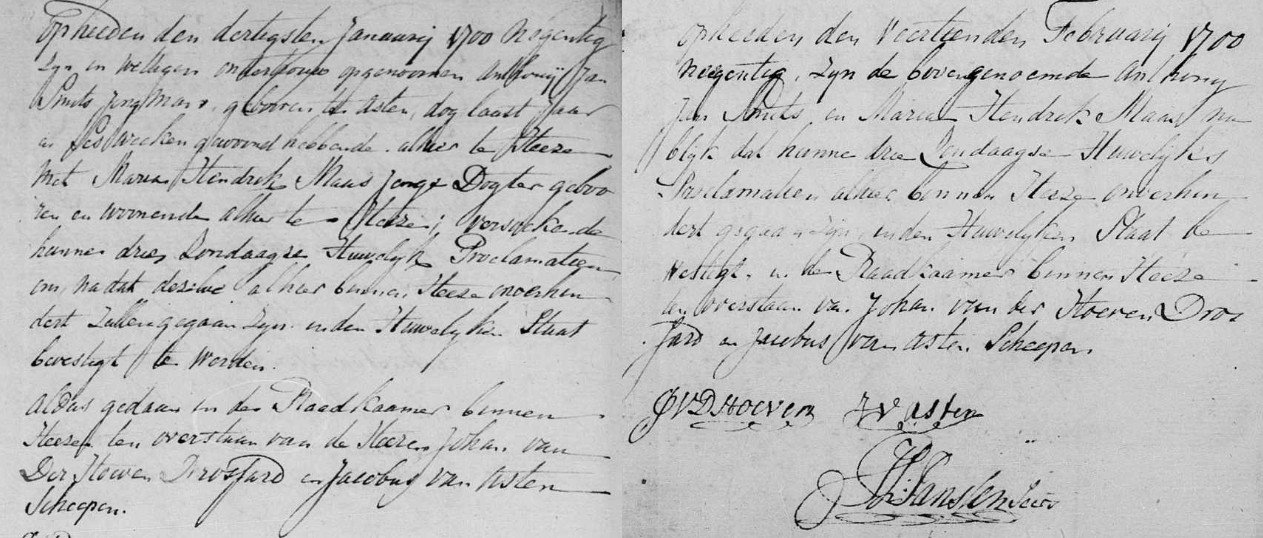 Op heeden den dertigsten Januarij 1700 Negentig
Zyn in Wettigen ondertrouw opgenoomen Anthonij Jan
Smits Jong Man, gebooren te Asten, dog laast Jaar
en Ses Weeken gewoond hebbende alhier te Heeze
Met Maria Hendrik Maas Jonge Dogter geboo
ren en woonende alhier te Heeze; versoekende
hunne drie Zondaagse Huwelyk Proclamatien
om, na dat deselve alhier binnen Heeze onverhin
dert Zullen gegaan Zyn in den Huwelyken Staat
bevestigt te werden.
Aldus gedaan in de Raadkaamer binnen
Heeze ten overstaan van de Heeren Johan van
Der Hoeven Drossard en Jacobus van Asten
Scheepen.
Op heeden den Veertienden Februarij 1700
Neegentig, Zyn de bovengenoemde Anthonij
Jan Smits, en Maria Hendrik Maas, na
blyk dat hunne drie Zondaagse Huwelyks
Proclamatien alhier binnen Heeze onverhin
dert gegaan Zyn, in den Huwelyken Staat be
vestigt in de Raadkaamer binnen Heeze
ten overstaan van Johan van der Hoeven Dros
sard en Jacobus van Asten Scheepen.
JVDHoeven J V Asten
Janssen Secrs